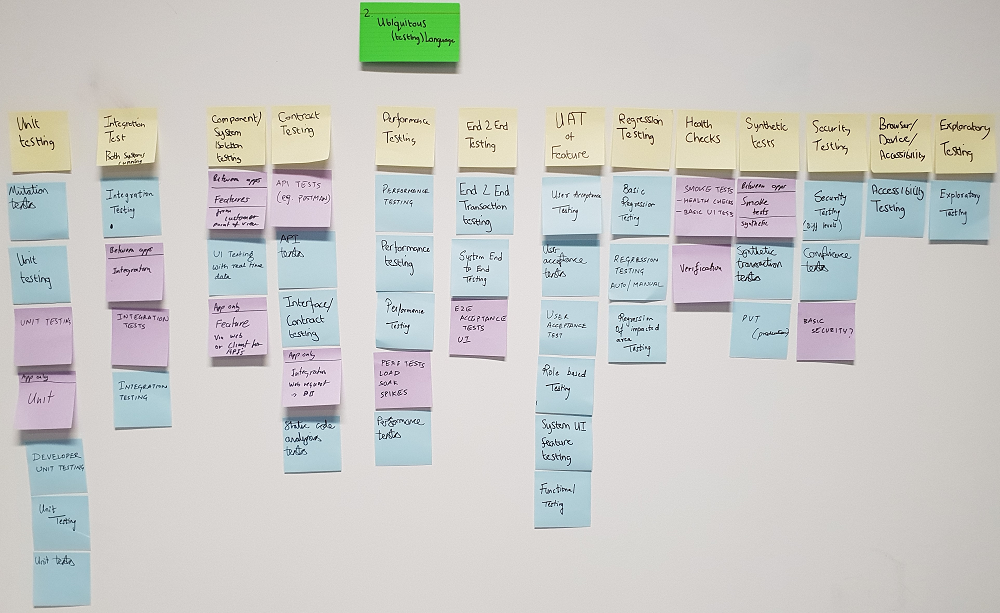 2.
Ubiquitous
(testing) Language
Unit
testing
Mutation
tests
Unit
testing
UNIT TESTING
App only
Unit
DEVELOPER
UNIT TESTING
Unit
Testing
Unit tests
Integration
Test
Both Systems
running
Integration
Testing
Between apps
Integration
INTEGRATION
TESTS
INTEGRATION
TESTING
Component/
System
Isolation
testing
Between apps
Features
from customer
point of view
UI Testing
with real time
data
App only
Feature
Via web
or client for
APIs
Contract
Testing
API TESTS
(eg. POSTMAN)
API
tests
Interface/
Contract
testing
App only
Integration
Web request
Static code
analysis
tests
Performance
Testing
PERFORMANCE
TESTING
Performance
testing
Performance
Testing
PERF TESTS
LOAD
SOAK
SPIKES
Performance
tests
End 2 End
Testing
End 2 End
Transaction
testing
System End
to End
Testing
E2E
ACCEPTANCE
TESTS
UI
UAT
of
Feature
User Acceptance
Testing
User
acceptance
tests
USER
ACCEPTANCE
TEST
Role based
Testing
System UI
feature
testing
Functional
Testing
Regression
Testing
Basic
Regression
Testing
REGRESSION
TESTING
AUTO/MANUAL
Regression
of impacted
area
Testing
Health
Checks
SMOKE TESTS
- HEALTH CHECKS
- BASIC UI TESTS
Verification
Synthetic
tests
Between apps
Smoke
tests
Synthetic
Synthetic
transaction
tests
PVT
(production)
Security
Testing
Security
Testing
(Diff levels)
Compliance
tests
BASIC
SECURITY?
Browser/
Device/
Accessibility
Accessibility
Testing
Exploratory
Testing
Exploratory
Testing